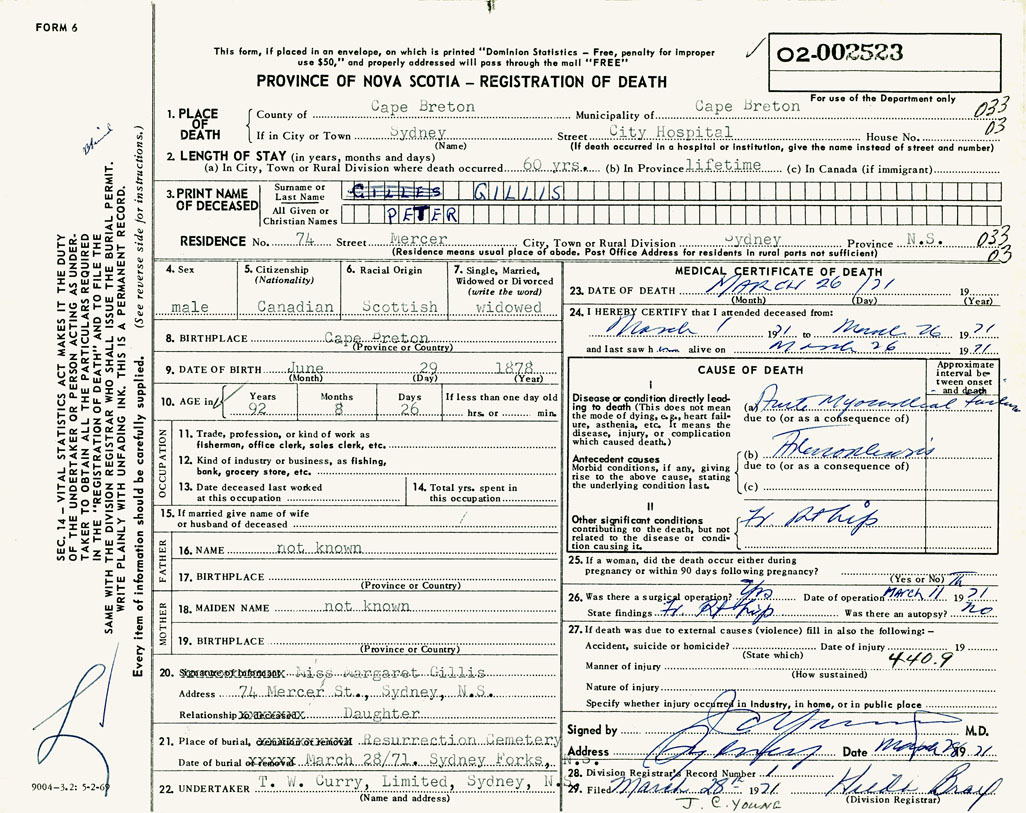 FORM 6
This form, if placed in an envelope, on which is printed "Dominion Statistics – Free, penalty for improper
use $50," and properly addressed will pass through the mail "FREE"
PROVINCE OF NOVA SCOTIA – REGISTRATION OF DEATH
02-002523
For use of the Department only
1. PLACE OF DEATH
County of Cape Breton Municipality of Cape Breton 033
If in City or Town Sydney Street City Hospital House No. 03
(Name) (If death occurred in a hospital or institution, give the name instead of street and number)
2. LENGTH OF STAY (in years, months and days)
(a) In City, Town or Rural Division where death occurred 60 yrs. (b) In Province lifetime (c) In Canada (if immigrant)
3. PRINT NAME OF DECEASED
Surname or Last Name GILLES GILLIS
All Given or Christian Names PETER
RESIDENCE No. 74 Street Mercer City, Town or Rural Division Sydney Province N.S. 033
(Residence means usual place of abode. Post Office Address for residents in rural parts not sufficient) 03
4. Sex
male
5. Citizenship (Nationality)
Canadian
6. Racial Origin
Scottish
7. Single, Married, Widowed or Divorced (write the word)
widowed
8. BIRTHPLACE Cape Breton
(Province or Country)
9. DATE OF BIRTH June 29 1878
(Month) (Day) (Year)
10. AGE in Years Months Days If less than one day old
92 8 26 hrs. or min.
OCCUPATION
11. Trade, profession, or kind of work as
fisherman, office clerk, sales clerk, etc.
12. Kind of industry or business, as fishing,
bank, grocery store, etc.
13. Date deceased last worked at this occupation
14. Total yrs. spent in this occupation
15. If married give name of wife
or husband of deceased
FATHER
16. NAME not known
17. BIRTHPLACE
(Province or Country)
MOTHER
18. MAIDEN NAME not known
19. BIRTHPLACE
(Province or Country)
20. Signature of Informant Miss Margaret Gillis
Address 74 Mercer St., Sydney, N.S.
Relationship to deceased Daughter
21. Place of burial, cremation or removal Resurrection Cemetery
Date of burial March 28/71. Sydney Forks, N.S.
22. UNDERTAKER T. W. Curry, Limited, Sydney, N.S.
(Name and address)
MEDICAL CERTIFICATE OF DEATH
23. DATE OF DEATH MARCH 26 /71 19
(Month) (Day) (Year)
24. I HEREBY CERTIFY that I attended deceased from:
March 1 1971 to March 26 1971
and last saw him alive on March 26 1971
CAUSE OF DEATH
Approximate interval between onset and death
I
Disease or condition directly leading to death (This does not mean the mode of dying, e.g., heart failure, asthenia, etc. It means the disease, injury, or complication which caused death.)
(a) Acute Myocardial failure
due to (or as a consequence of)
Antecedent causes
Morbid conditions, if any, giving rise to the above cause, stating the underlying condition last.
(b)
due to (or as a consequence of)
(c)
II
Other significant conditions contributing to the death, but not related to the disease or condition causing it.
Fr Rt hip
25. If a woman, did the death occur either during
pregnancy or within 90 days following pregnancy?
(Yes or No)
26. Was there a surgical operation? Yes Date of operation MARCH 11 1971
State findings Fr Rt hip Was there an autopsy? no
27. If death was due to external causes (violence) fill in also the following: –
Accident, suicide or homicide? Date of injury 19
(State which) 440.9
Manner of injury
(How sustained)
Nature of injury
Specify whether injury occurred in Industry, in home, or in public place
Signed by J C Young M.D.
Address Sydney Date 1971
28. Division Registrar's Record Number
29. Filed March 28th 1971
(Division Registrar)
J. C. YOUNG
SEC. 14 – VITAL STATISTICS ACT MAKES IT THE DUTY
OF THE UNDERTAKER OR PERSON ACTING AS UNDER-
TAKER TO OBTAIN ALL THE PARTICULARS REQUIRED
IN THE "REGISTRATION OF DEATH" AND TO FILE THE
SAME WITH THE DIVISION REGISTRAR WHO SHALL ISSUE THE BURIAL PERMIT.
WRITE PLAINLY WITH UNFADING INK. THIS IS A PERMANENT RECORD.
Every item of information should be carefully supplied. (See reverse side for instructions.)
9004-3.2: 5-2-69